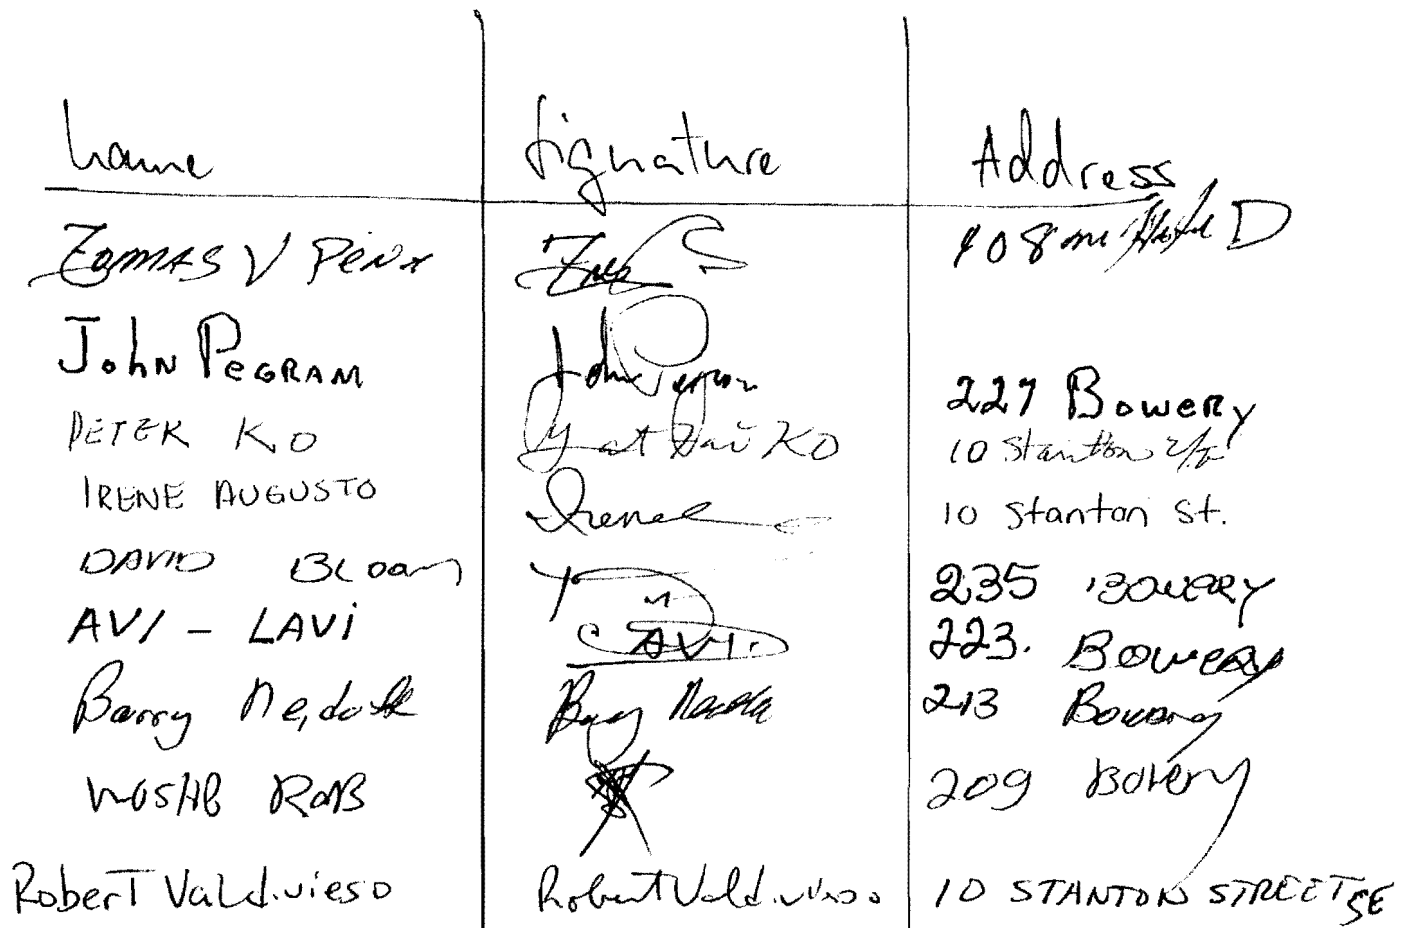 Name Signature Address
Tomas V Pena 408
John Pegram John Pegram 227 Bowery
Peter Ko Yat Hai Ko 10 Stanton
Irene Augusto Irene 10 Stanton St.
David Bloom 235 Bowery
AVI - LAVI AVI. 223. Bowery
Barry Barry 213 Bowery
209 Bowery
Robert Valdivieso Robert Valdivieso 10 STANTON STREET 5E